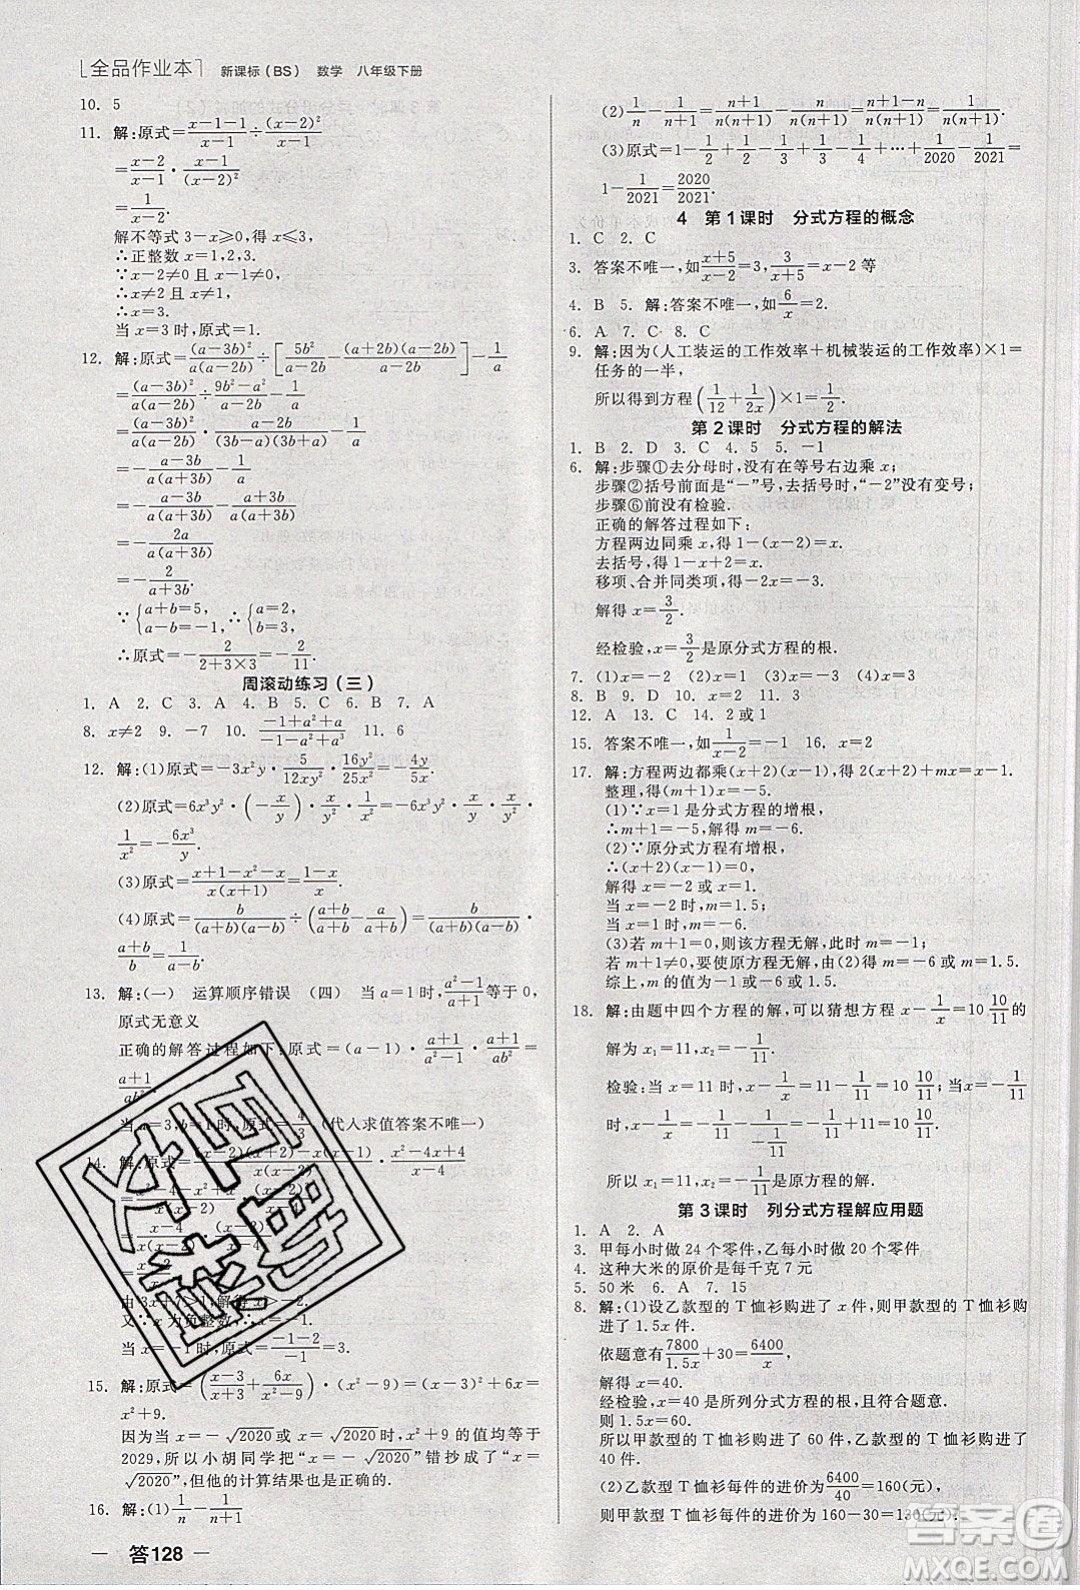 全品作业本 新课标(BS) 数学 八年级下册
10. 5
11. 解:原式=(x-1-1)/(x-1)÷(x-2)²/(x-1)
=(x-2)/(x-1)·(x-1)/(x-2)²
=1/(x-2).
解不等式3-x≥0,得x≤3.
∴正整数x=1,2,3.
∵x-2≠0且x-1≠0,
∴x≠2且x≠1,
∴x=3.
当x=3时,原式=1.
12. 解:原式=(a-3b)²/a(a-2b)÷[5b²/(a-2b)-(a+2b)(a-2b)/(a-2b)]-1/a
=(a-3b)²/a(a-2b)÷(9b²-a²)/(a-2b)-1/a
=(a-3b)²/a(a-2b)·(a-2b)/(3b-a)(3b+a)-1/a
=-(a-3b)/a(a+3b)-1/a
=-2a/a(a+3b)
=-2/(a+3b).
∵{a+b=5, a-b=-1, ∴{a=2, b=3,
∴原式=-2/(2+3×3)=-2/11.
周滚动练习(三)
1. A 2. C 3. A 4. B 5. C 6. B 7. A
8. x≠2 9. -7 10. (-1+a²+a)/(-1-a²+a³) 11. 6
12. 解:(1)原式=-3x²y·5/12xy²·16y²/25x²=-4y/5x.
(2)原式=6x³y²·(-x/y)·x/y·1/x²=-6x³y²·x/y·x/y·
1/x²=-6x³/y.
(3)原式=(x+1-x²-x)/(x²-1)=-1.
(4)原式=b/(a+b)(a-b)÷((a+b)/(a+b)-a/(a+b))=b/(a+b)(a-b)·
(a+b)/b=1/(a-b).
13. 解:(一) 运算顺序错误 (四) 当a=1时,(a²-1)/(a+1)等于0,
原式无意义
正确的解答过程如下:原式=(a-1)·
当a=3, 时,原式=4/3(代入求值答案不唯一)
14. 解:原式
由3x+7>1,解得x>-2.
又∵x为负整数,∴x=-1.
当x=-1时,原式=3.
15. 解:原式=((x-3)/(x+3)+6x/(x²-9))·(x²-9)=(x-3)²+6x=
x²+9.
因为当x=-√2020或x=√2020时,x²+9的值均等于
2029,所以小胡同学把"x=-√2020"错抄成了"x=
√2020",但他的计算结果也是正确的.
16. 解:(1)1/n-1/(n+1)
— 答128 —
(2)1/n-1/(n+1)=(n+1)/n(n+1)-n/n(n+1)=(n+1-n)/n(n+1)=1/n(n+1).
(3)原式=1-1/2+1/2-1/3+1/3-1/4+…+1/2020-1/2021=
1-1/2021=2020/2021.
4 第1课时 分式方程的概念
1. C 2. C
3. 答案不唯一,如(x+5)/(x-2)=3,3/(x+5)=x-2等
4. B 5. 解:答案不唯一,如6/x=2.
6. A 7. C 8. C
9. 解:因为(人工装运的工作效率+机械装运的工作效率)×1=
任务的一半,
所以得到方程(1/12+1/2x)×1=1/2.
第2课时 分式方程的解法
1. B 2. D 3. C 4. 5 5. -1
6. 解:步骤①去分母时,没有在等号右边乘x;
步骤②括号前面是"-"号,去括号时,"-2"没有变号;
步骤⑥前没有检验.
正确的解答过程如下:
方程两边同乘x,得1-(x-2)=x.
去括号,得1-x+2=x.
移项、合并同类项,得-2x=-3.
解得x=3/2.
经检验,x=3/2是原分式方程的根.
7. (1)x=-2 (2)x=4 (3)x=0
8. B 9. D 10. D 11. D
12. A 13. C 14. 2或1
15. 答案不唯一,如1/(x-2)=-1 16. x=2
17. 解:方程两边都乘(x+2)(x-1),得2(x+2)+mx=x-1.
整理,得(m+1)x=-5.
(1)∵x=1是分式方程的增根,
∴m+1=-5,∴m=-6.
(2)∵原分式方程有增根,
∴(x+2)(x-1)=0,
解得x=-2或x=1.
当x=-2时,m=1.5;
当x=1时,m=-6.
(3)若m+1=0,则该方程无解,此时m=-1;
若m+1≠0,要使原方程无解,由(2)得m=-6或m=1.5.
综上,m的值为-1或-6或1.5.
18. 解:由题中四个方程的解,可以猜想方程x-1/x=10 10/11的
解为x₁=11,x₂=-1/11.
检验:当x=11时,x-1/x=11-1/11=10 10/11;当x=-1/11
时,x-1/x=-1/11+11=10 10/11.
所以x₁=11,x₂=-1/11是原方程的解.
第3课时 列分式方程解应用题
1. A 2. A
3. 甲每小时做24个零件,乙每小时做20个零件
4. 这种大米的原价是每千克7元
5. 50米 6. A 7. 15
8. 解:(1)设乙款型的T恤衫购进了x件,则甲款型的T恤衫购进
了1.5x件.
依题意得7800/1.5x+30=6400/x,
解得x=40.
经检验,x=40是所列分式方程的解,且符合题意.
则1.5x=60.
所以甲款型的T恤衫购进了60件,乙款型的T恤衫购进了
40件.
(2)乙款型T恤衫每件的进价为6400/40=160(元),
则甲款型T恤衫每件的进价为160-30=130(元).
答案圈
MXQE.COM